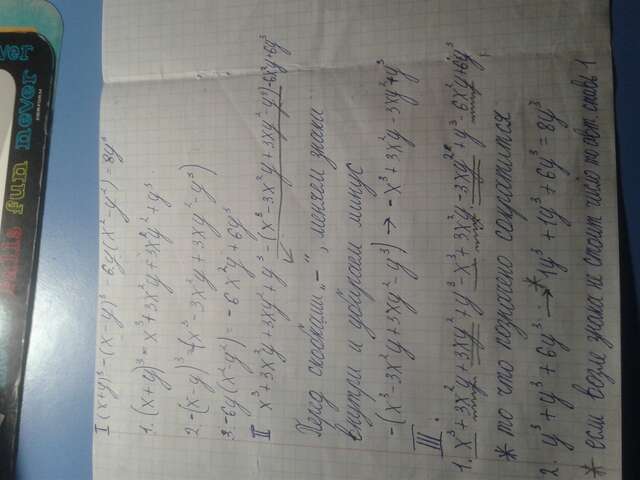 never falls fun never never
I (x+y)³ - (x-y)³ - 6y(x² - y²) = 8y³
1. (x+y)³ = x³+3x²y+3xy²+y³
2. -(x-y)³ = -(x³-3x²y+3xy²-y³)
3. -6y(x²-y²) = -6x²y+6y³
II x³+3x²y+3xy²+y³-(x³-3x²y+3xy²-y³)-6x²y+6y³
Перед скобками „-", меняем знаки
внутри и убираем минус
-(x³-3x²y+3xy²-y³) → -x³+3x²y-3xy²+y³
III.
1. x³+3x²y+3xy²+y³-x³+3x²y-3xy²+y³-6x²y+6y³
* то что позначено сократится
2. y³+y³+6y³ → *1y³+1y³+6y³=8y³
* если возле знака не стоит число то авт. ставь 1